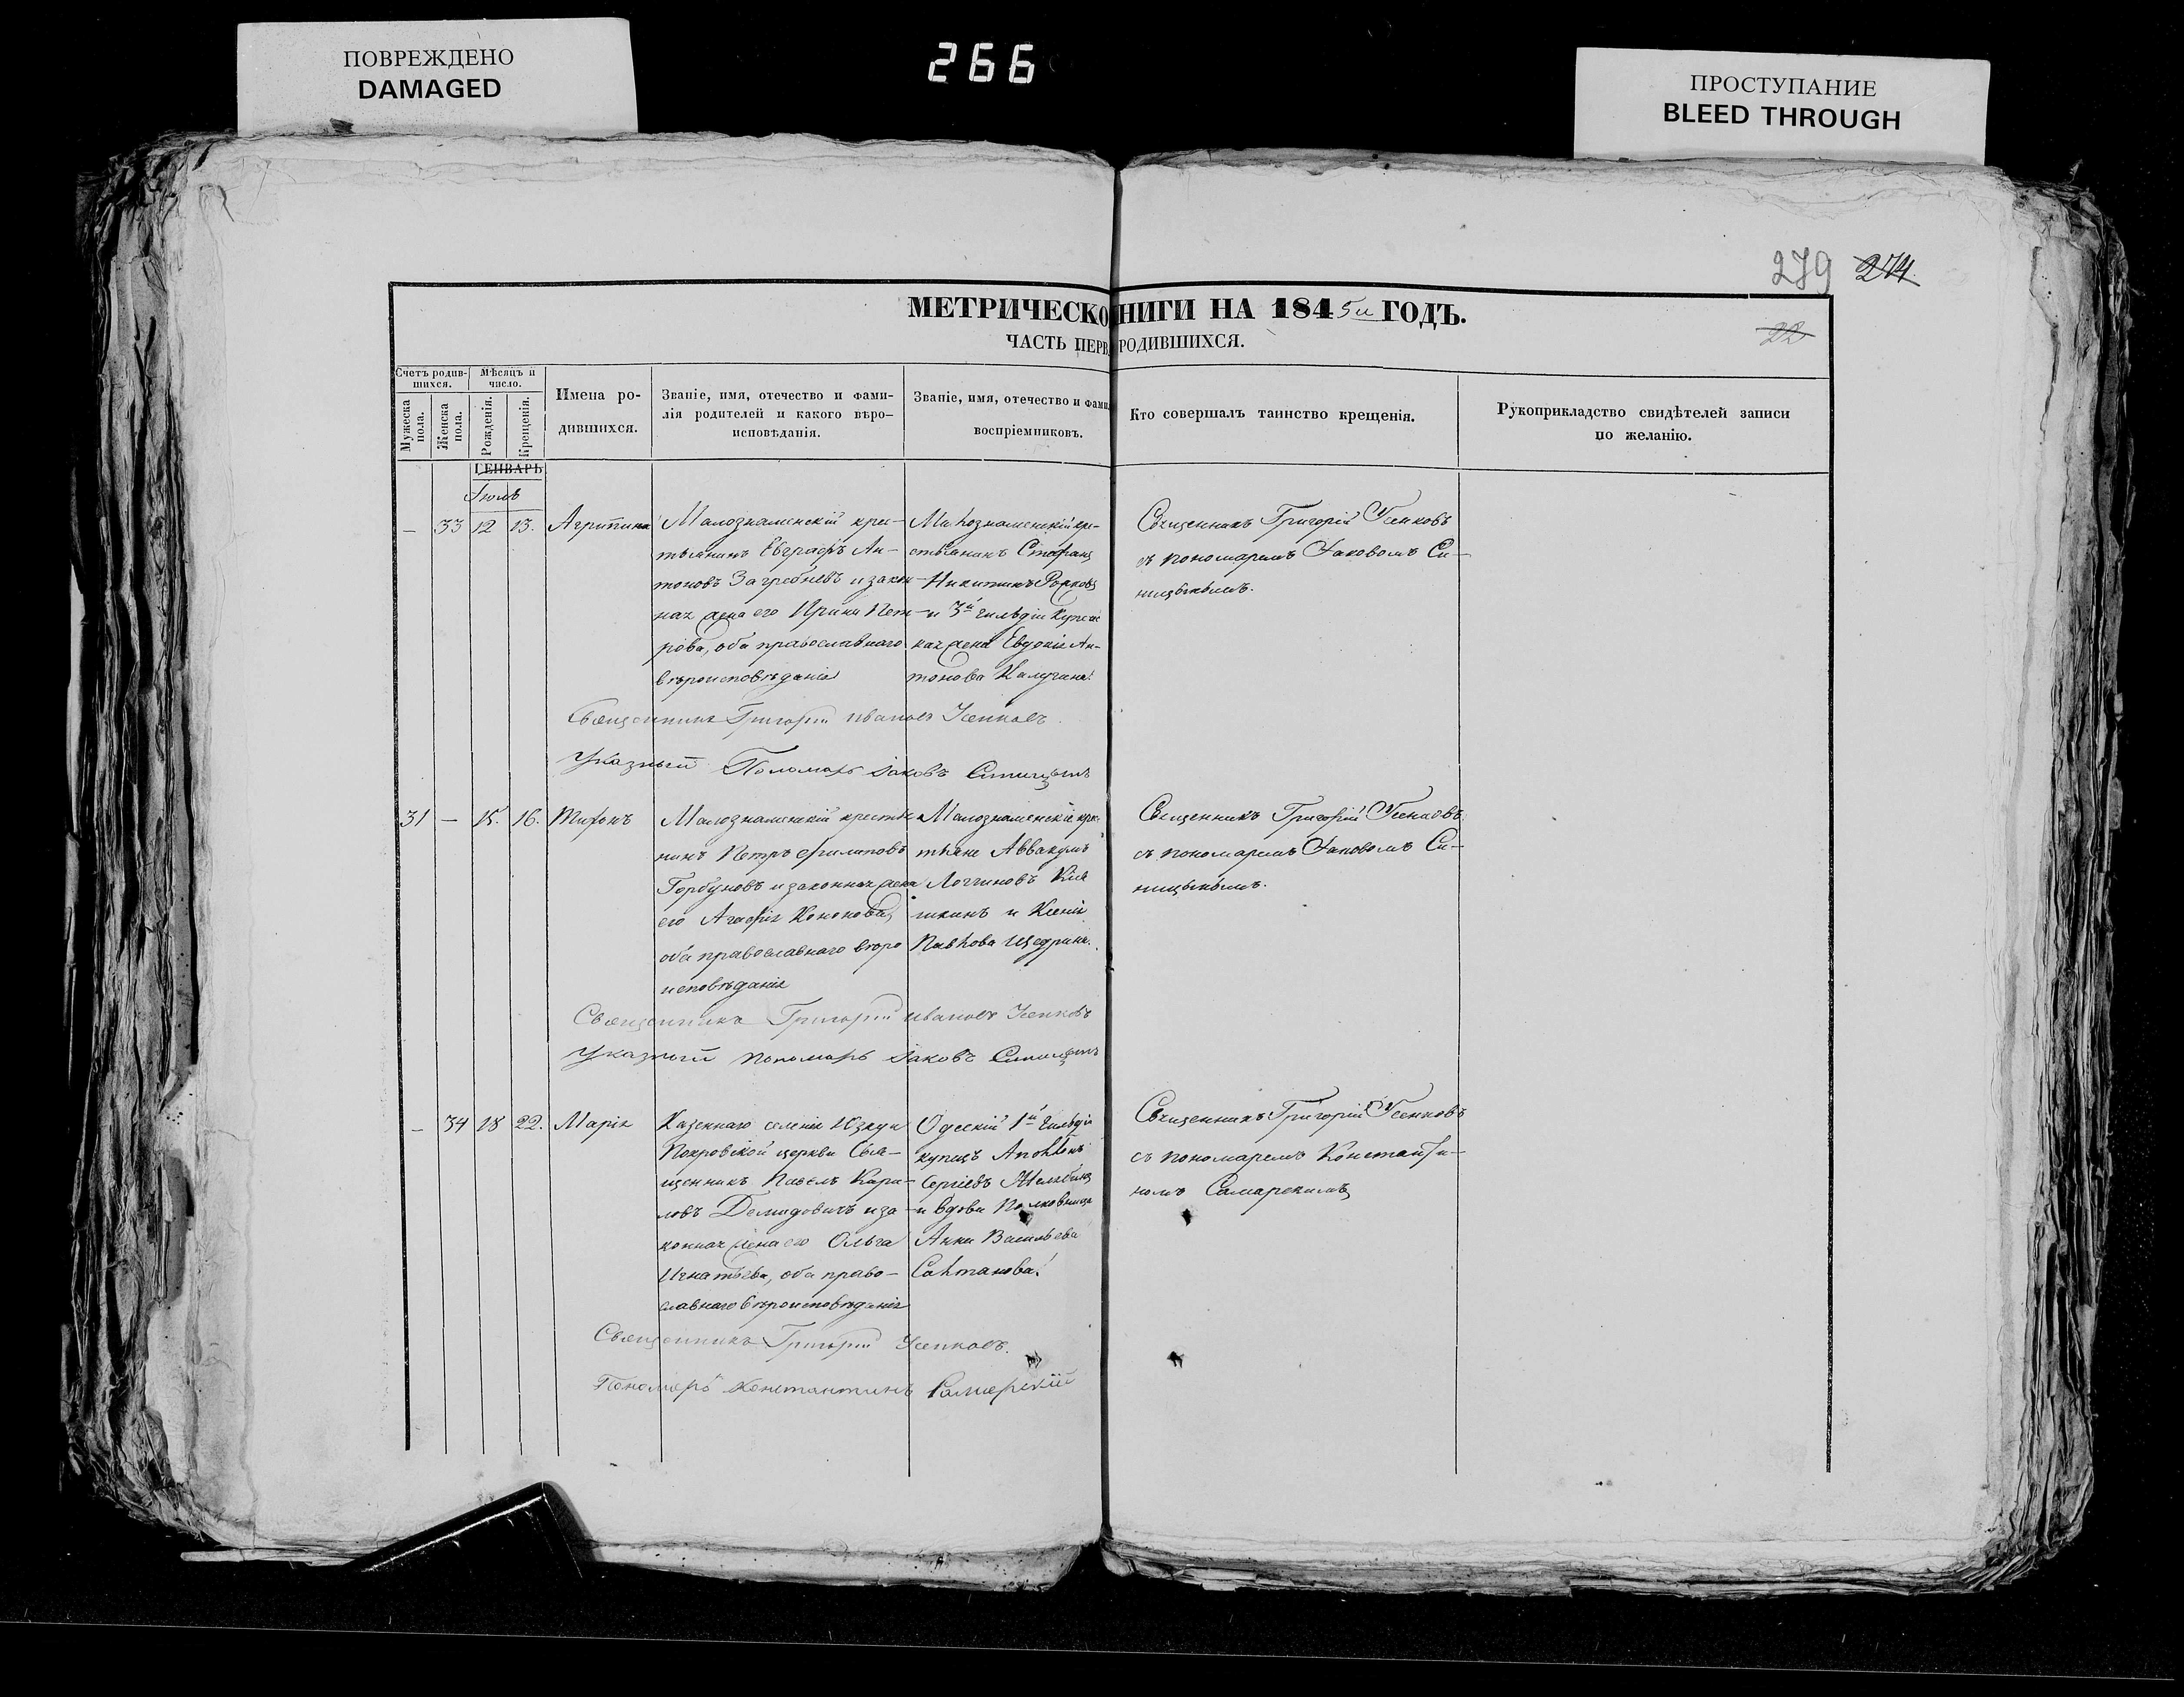 ПОВРЕЖДЕНО
DAMAGED
266
ПРОСТУПАНИЕ
BLEED THROUGH
279 274
22
МЕТРИЧЕСКО НИГИ НА 1845й ГОДЪ.
ЧАСТЬ ПЕРВ РОДИВШИХСЯ.
Счетъ родив-
шихся.
Мѣсяцъ и
число.
Мужеска
пола.
Женска
пола.
Рожденія.
Крещенія.
Имена ро-
дившихся.
Званіе, имя, отечество и фами-
лія родителей и какого вѣро-
исповѣданія.
Званіе, имя, отечество и фами
воспріемниковъ.
Кто совершалъ таинство крещенія.
Рукоприкладство свидѣтелей записи
по желанію.
ГЕНВАРЬ
Іюль
– 33 12 13. Агрипина
Малознаменскій крес-
тьянинъ Евграфъ Ан-
тоновъ Загребневъ и закон-
ная жена его Ирина Пет-
рова, оба православнаго
вѣроисповѣданія
Малознаменскій кре-
стьянинъ Стефанъ
Никитинъ
и 3й гильдіи купече
ская жена Евдокія Ан-
тонова Калугина.
Священникъ Григорій Усенковъ
съ пономаремъ Іаковомъ Си-
ницынымъ.
Священникъ Григорій Ивановъ Усенковъ.
Указный Пономарь Іаковъ Синицынъ
31 – 15. 16. Тифонъ
Малознаменскій крестья
нинъ Петръ Филиповъ
Горбуновъ и законная жена
его Агафія Кононова,
оба православнаго вѣро
исповѣданія
Малознаменскіе кре
тьяне Аввакумъ
Логгиновъ
шкинъ и Ксенія
Павлова Щедрина.
Священникъ Григорій Усенковъ
съ пономаремъ Іаковомъ Си-
ницынымъ.
Священникъ Григорій Ивановъ Усенковъ
Указный пономарь Іаковъ Синицынъ
– 34 18 22. Марія
Казеннаго селенія Юзкуи
Покровской церкви Свя-
щенникъ Павелъ Кири-
ловъ Демидовичъ и за-
конная жена его Ольга
Игнатьева, оба право-
славнаго вѣроисповѣданія
Одесскій 1й гильдіи
купецъ Аполлонъ
Сергіевъ
и вдова Полковница
Анна Васильева
Салтанова.
Священникъ Григорій Усенковъ
съ пономаремъ Константи-
номъ Самарскимъ
Священникъ Григорій Усенковъ.
Пономарь Константинъ Самарскій